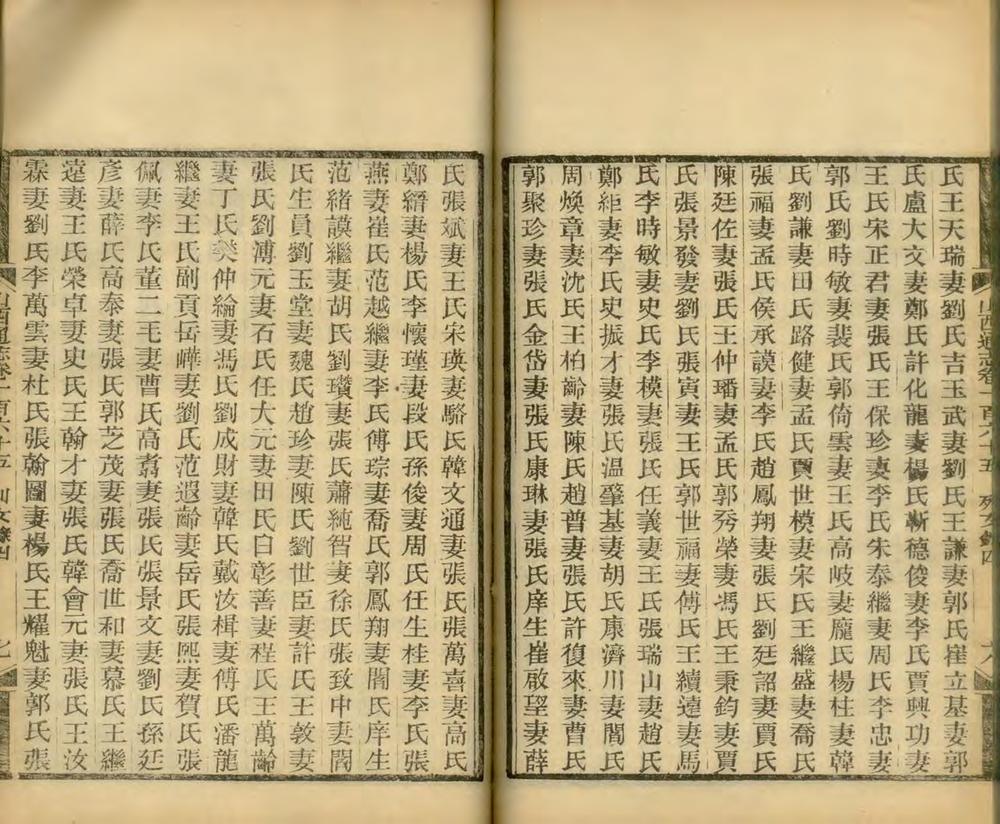 氏王天瑞妻劉氏吉玉武妻劉氏王謙妻郭氏崔立基妻郭
氏盧大文妻鄭氏許化龍妻楊氏靳德俊妻李氏賈興功妻
王氏宋正君妻張氏王保珍妻李氏朱泰繼妻周氏李忠妻
郭氏劉時敏妻裴氏郭倚雲妻王氏高岐妻龐氏楊柱妻韓
氏劉謙妻田氏路健妻孟氏賈世模妻宋氏王繼盛妻喬氏
張福妻孟氏侯承謨妻李氏趙鳳翔妻張氏劉廷詔妻賈氏
陳廷佐妻張氏王仲璠妻孟氏郭秀榮妻馮氏王秉鈞妻賈
氏張景發妻劉氏張寅妻王氏郭世福妻傅氏王續遠妻馬
氏李時敏妻史氏李模妻張氏任義妻王氏張瑞山妻趙氏
鄭紞妻李氏史振才妻張氏溫肇基妻胡氏康濟川妻閻氏
周煥章妻沈氏王柏齡妻陳氏趙普妻張氏許復來妻曹氏
郭聚珍妻張氏金岱妻張氏康琳妻張氏庠生崔啟望妻薛
山西通志卷一百八十五 列女錄四
氏張斌妻王氏宋瑛妻駱氏韓文通妻張氏張萬喜妻高氏
鄭縉妻楊氏李懷瑾妻段氏孫俊妻周氏任生桂妻李氏張
燕妻崔氏范越繼妻李氏傅琮妻喬氏郭鳳翔妻閻氏庠生
范緒謨繼妻胡氏劉瓚妻張氏蕭純智妻徐氏張致中妻閻
氏生員劉玉堂妻魏氏趙珍妻陳氏劉世臣妻許氏王敦妻
張氏劉溥元妻石氏任大元妻田氏白彰善妻程氏王萬齡
妻丁氏樊仲綸妻馮氏劉成財妻韓氏戴汝楫妻傅氏潘龍
繼妻王氏副貢岳嶧妻劉氏范遐齡妻岳氏張熙妻賀氏張
佩妻李氏董二毛妻曹氏高翥妻張氏張景文妻劉氏孫廷
彥妻薛氏高泰妻張氏郭芝茂妻張氏喬世和妻慕氏王繼
遠妻王氏榮卓妻史氏王翰才妻張氏韓會元妻張氏王汝
霖妻劉氏李萬雲妻杜氏張翰圖妻楊氏王耀魁妻郭氏張